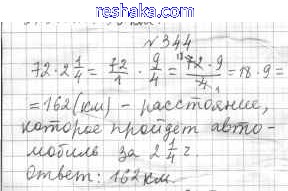 reshaka.com
№ 344
72 · 2 1/4 = 72/1 · 9/4 = 18 72 · 9 / 4 1 = 18 · 9 =
= 162 (км) – расстояние,
которое пройдет авто-
мобиль за 2 1/4 г.
Ответ: 162 км.